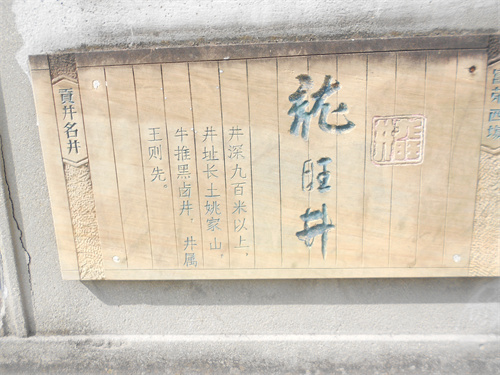 龙旺井
井深九百米以上，
井址长土姚家山，
牛推黑卤井，井属
王则先。
貢井名井